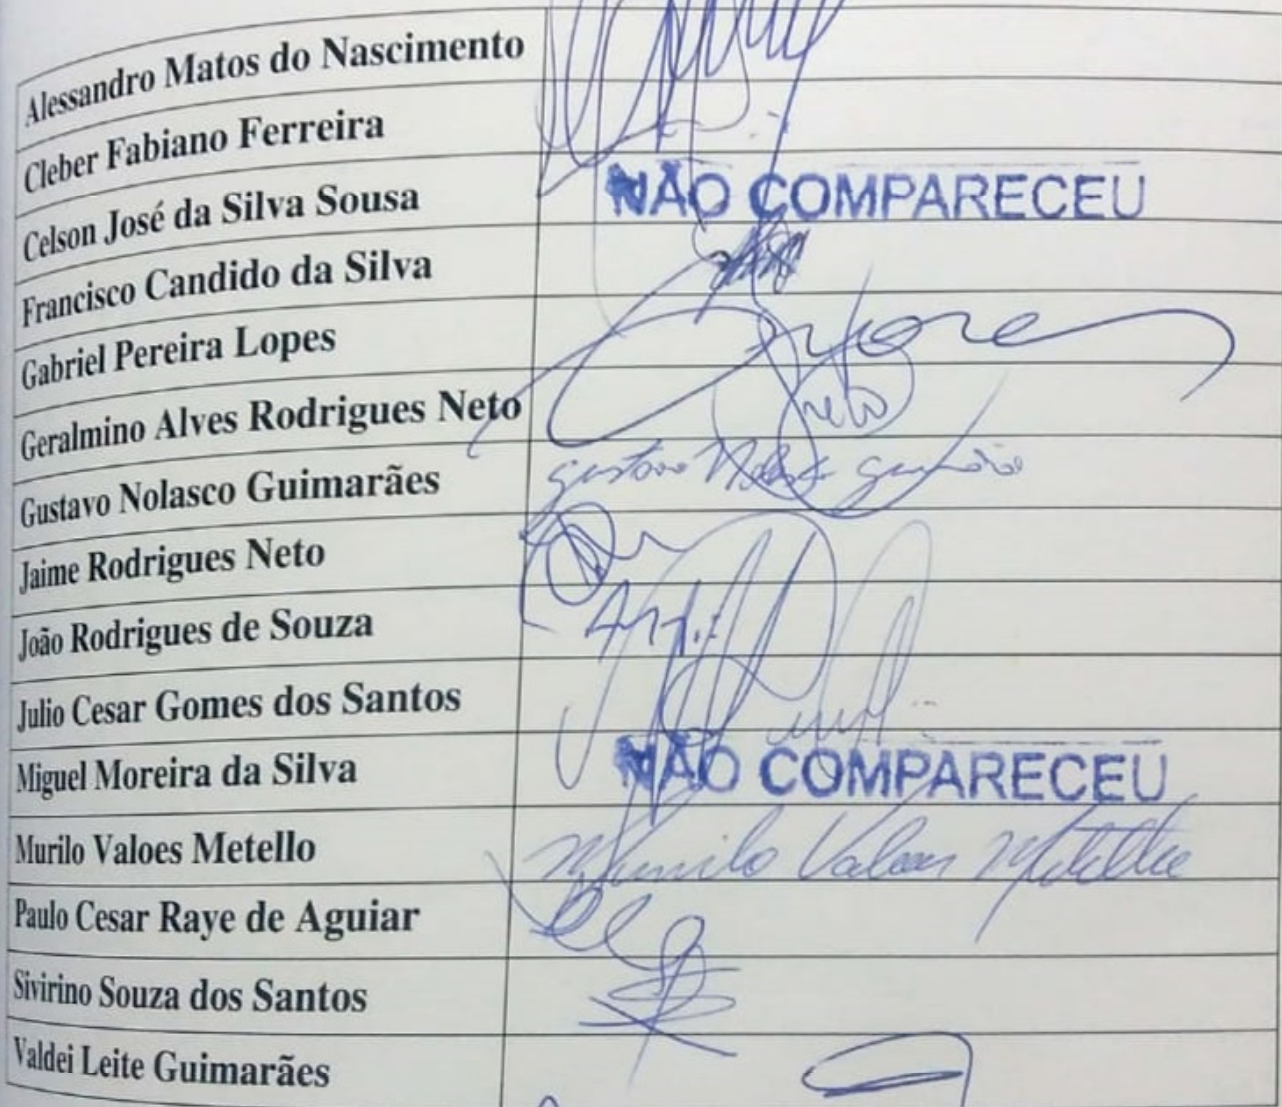 Alessandro Matos do Nascimento
Cleber Fabiano Ferreira
Celson José da Silva Sousa NÃO COMPARECEU
Francisco Candido da Silva
Gabriel Pereira Lopes
Geralmino Alves Rodrigues Neto
Gustavo Nolasco Guimarães Gustavo Nolasco Guimarães
Jaime Rodrigues Neto
João Rodrigues de Souza
Julio Cesar Gomes dos Santos
Miguel Moreira da Silva NÃO COMPARECEU
Murilo Valoes Metello Murilo Valoes Metello
Paulo Cesar Raye de Aguiar
Sivirino Souza dos Santos
Valdei Leite Guimarães